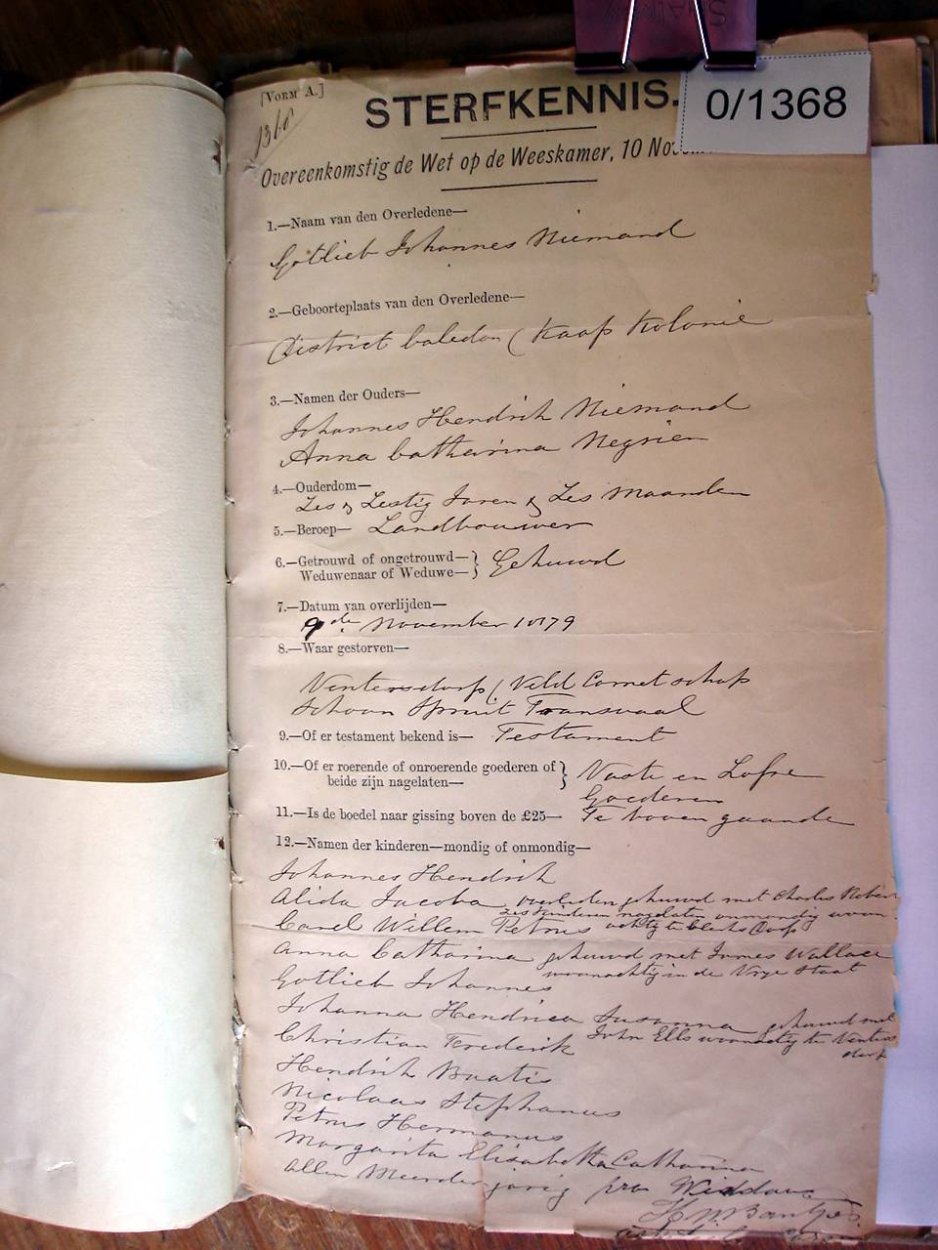 [VORM A.]
1368
STERFKENNIS.
0/1368
Overeenkomstig de Wet op de Weeskamer, 10
1.—Naam van den Overledene—
Gotlieb Johannes Niemand
2.—Geboorteplaats van den Overledene—
District Caledon (Kaap Kolonie
3.—Namen der Ouders—
Johannes Hendrik Niemand
Anna Catharina Negrien
4.—Ouderdom—
Zes & Zestig Jaren & Zes Maanden
5.—Beroep— Landbouwer
6.—Getrouwd of ongetrouwd—} Gehuwd
Weduwenaar of Weduwe—
7.—Datum van overlijden—
9de November 1879
8.—Waar gestorven—
Ventersdorp (Veld Cornetschap
Schoon Spruit Transvaal
9.—Of er testament bekend is— Testament
10.—Of er roerende of onroerende goederen of } Vaste en Losse
beide zijn nagelaten— Goederen
11.—Is de boedel naar gissing boven de £25— Te boven gaande
12.—Namen der kinderen—mondig of onmondig—
Johannes Hendrik
Alida Jacoba overleden gehuwd met Charles
zes kinderen nagelaten onmondig
Carel Willem Petrus
Anna Catharina gehuwd met James Wallace
woonachtig in de Vrye Staat
Gotlieb Johannes
Johanna Hendrica Susanna gehuwd met
John Ells woonachtig te Venters
dorp
Christian Frederik
Hendrik
Nicolaas Stephanus
Petrus Hermanus
Margarita Elisabetha Catharina
Allen Meerderjarig pro